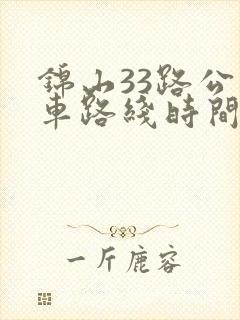 錦山33路公
車路綫時間
一斤鹿容